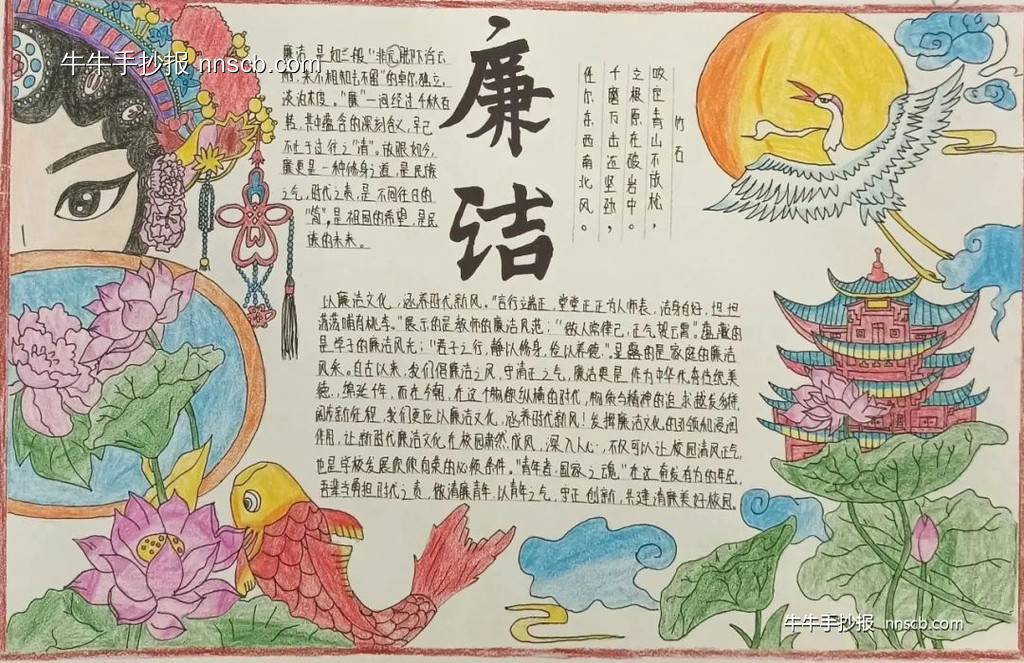 牛牛手抄报 nnscb.com
廉洁
廉洁，是如三极“非元
未不相知志不图”的卓尔独立，
淡泊本度。“廉”一词经过千秋百
转，其中蕴含的深刻含义，早已
不止于过行之“清”。放眼如今，
廉更是一种修身之道，是民族
之气，时代之责，是不同往日的
“简”，是祖国的希望，是民
族的未来。
竹石
咬定青山不放松，
立根原在破岩中。
千磨万击还坚劲，
任尔东西南北风。
以廉洁文化，涵养时代新风。“言行立端正，堂堂正正为人师表，洁身自好，坦坦
荡荡哺育桃李。”展示的是教师的廉洁风范；“做人常律己，正气贺云霄”蕴藏的
是学子的廉洁风光；“君子之行，静以修身，俭以养德。”显露的是家庭的廉洁
风采。自古以来，我们倡廉洁之风，守清正之气，廉洁更是作为中华优秀传统美
德，绵延千年，而在今朝，在这个物欲纵横的时代，物象与精神的追求越发多样，
阔步新征程，我们更应以廉洁文化，涵养时代新风！发挥廉洁文化的引领和浸润
作用，让新时代廉洁文化在校园蔚然成风，深入人心，不仅可以让校园清风正气，
也是学校发展欣欣向荣的必须条件。“青年者，国家之魂”在这奋发有为的年纪，
吾辈当肩担时代之责，做清廉青年，以青年之气，守正创新，共建清廉美好校园。
牛牛手抄报 nnscb.com